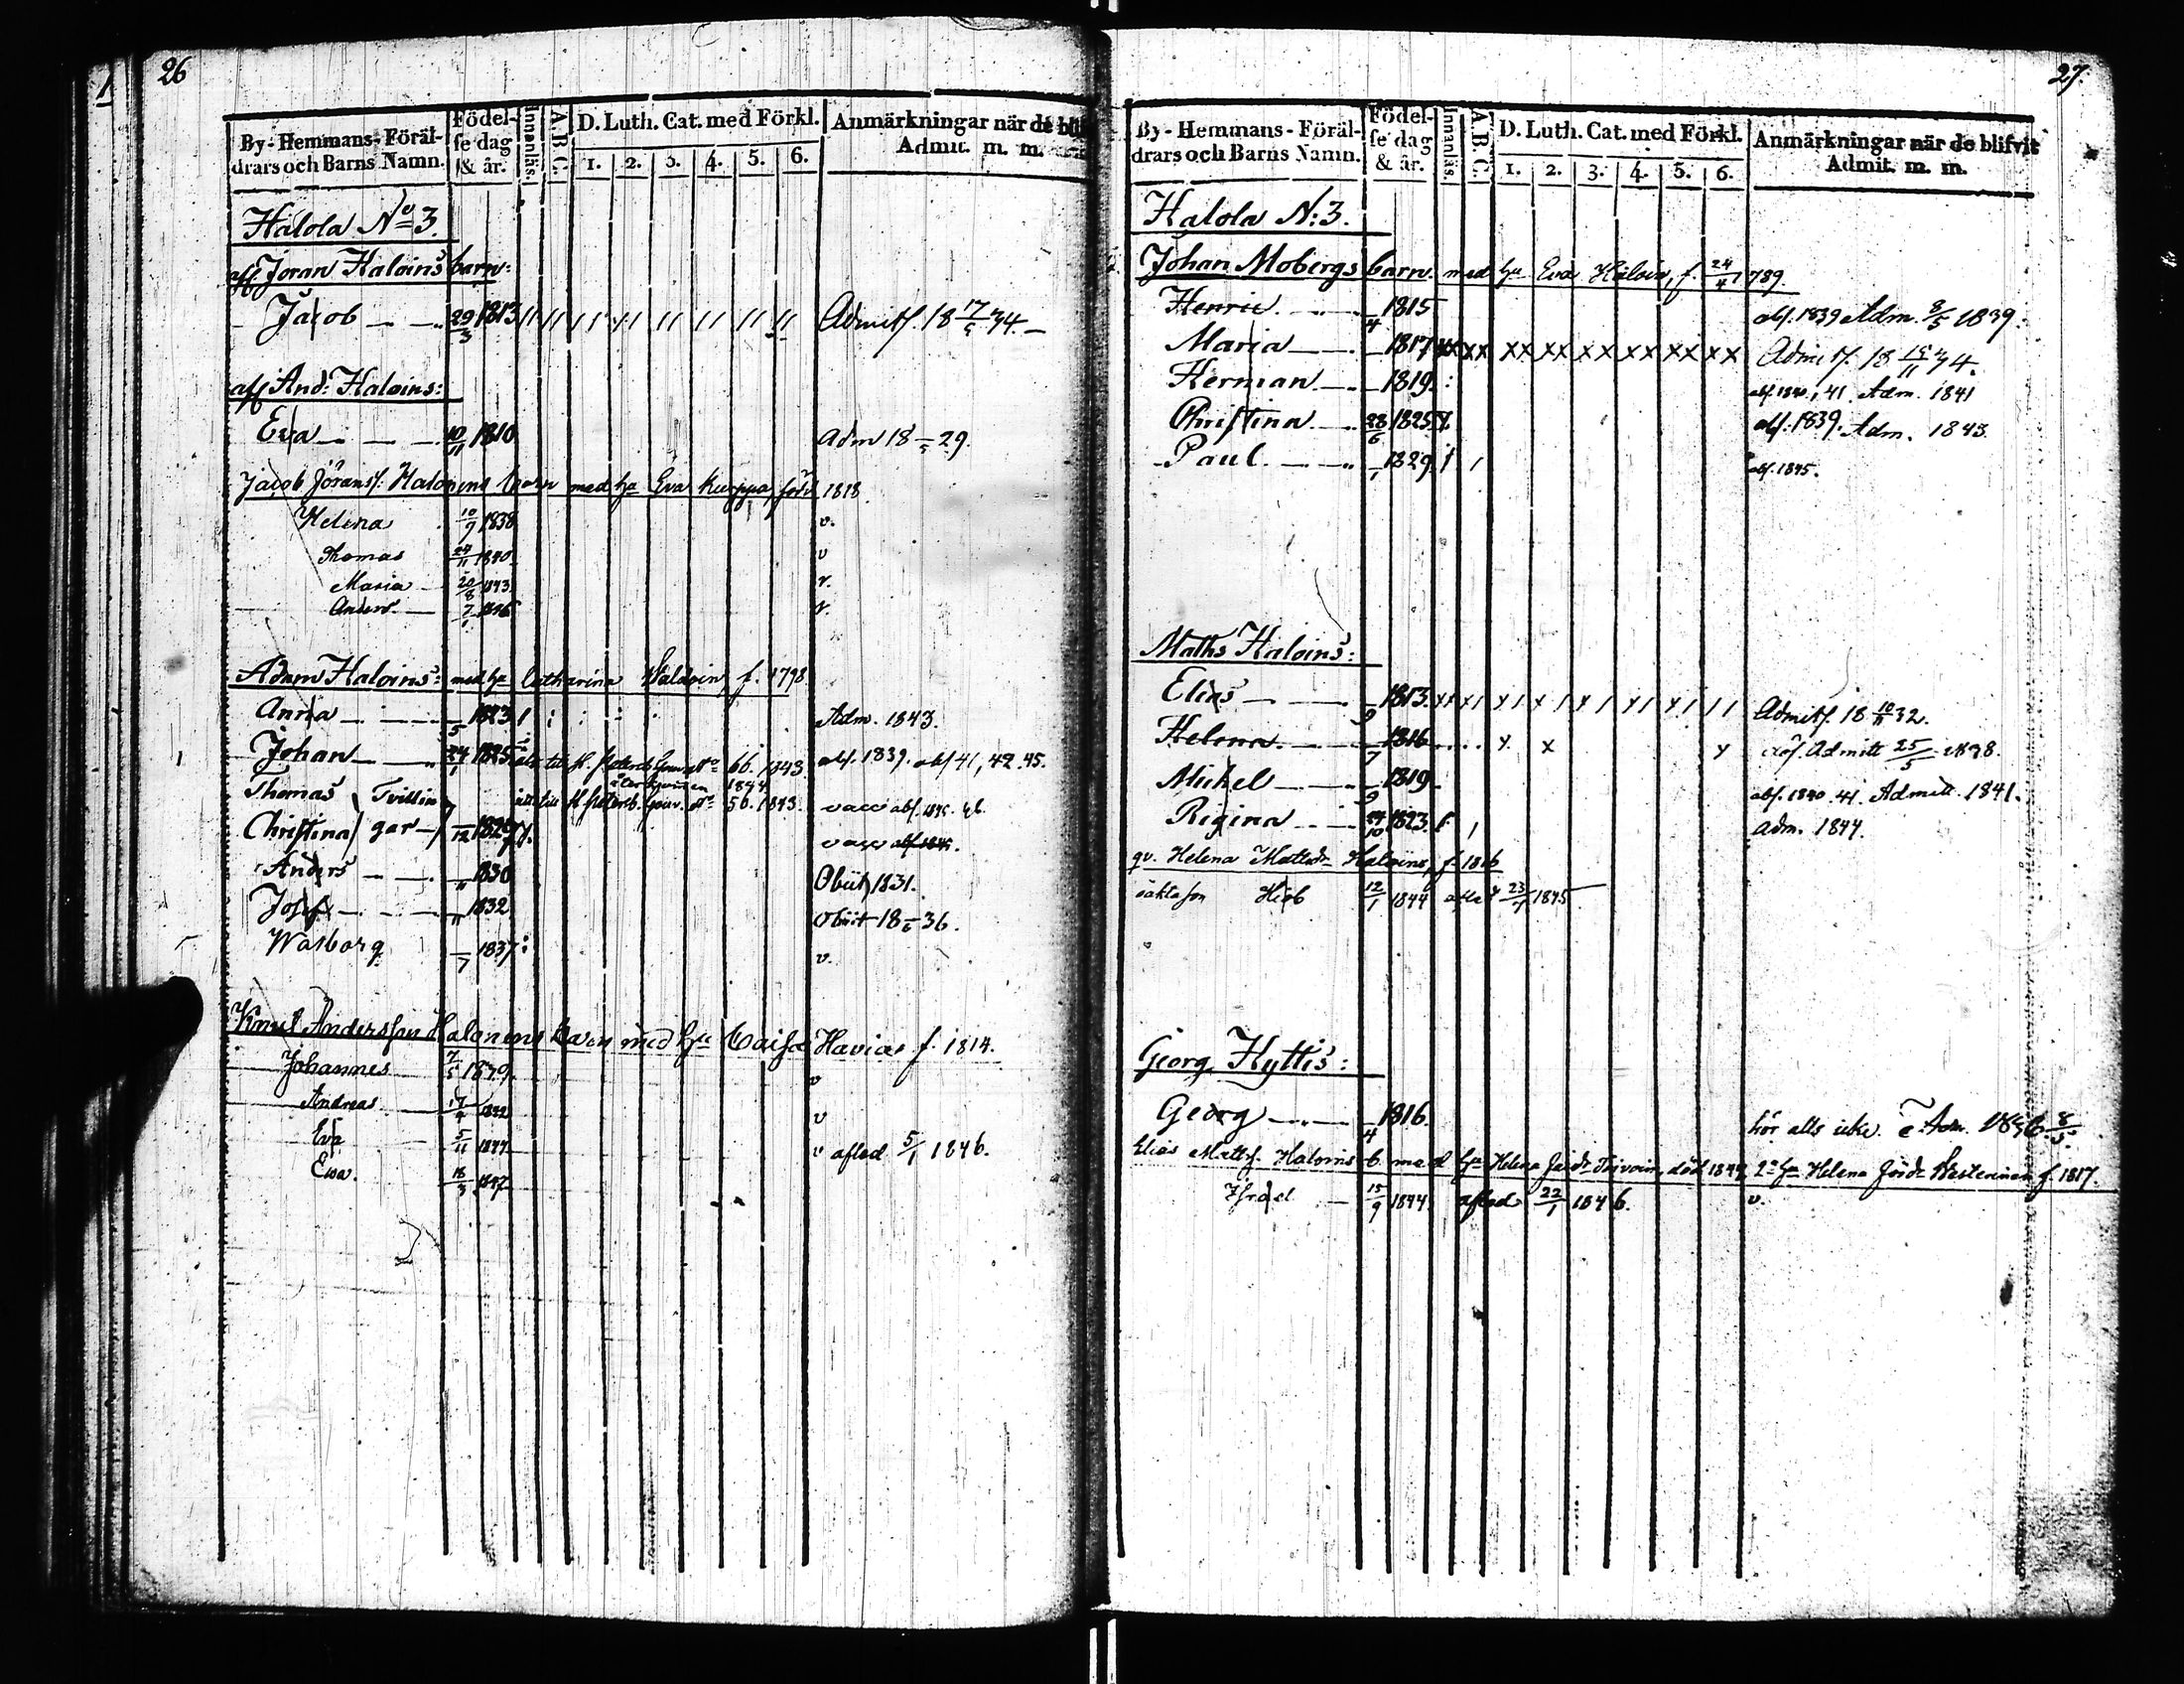 26
By-Hemmans-Föräl-
drars och Barns Namn.
Födel-
se dag
& år.
Innanläs.
A.B.C.
D. Luth. Cat. med Förkl.
1. 2. 3. 4. 5. 6.
Anmärkningar när de bli
Admit. m. m.
Halola No 3.
aff. Joran Haloins barn:
Jacob 29/3 1813 Admitt. 18 17/5 34.
aff And: Haloins:
Eva 10/11 1810 Adm 18 /5 29.
Jacob Joranss: Halonens barn med hu Eva Kurppa, född 1818
Helena 10/9 1838 v.
Thomas 24/11 1840 v
Maria 20/8 1843 v.
Anders 7/1 1846 v.
Adam Haloins: med hu Catharina f. 1798
Anna /5 1823 Adm. 1843.
Johan 24/1 1825 66. 1843 abs. 1839. abs 41, 42. 45.
1844
Thomas Tvillin 56. 1843. vacc abs. 1845. 46.
Christina gar /12 1829 vacc abs 1845.
Anders /11 1830 Obiit 1831.
Josef /11 1832 Obiit 18 /6 36.
Walborg /7 1837 v.
Knut Andersson Halonens barn med hu Caisa Haviar f. 1814.
Johannes 7/5 1839 v
Andreas 17/4 1842 v
Eva 5/11 1844 v afled 5/1 1846.
Ewa. 18/3 1847
27.
By-Hemmans-Föräl-
drars och Barns Namn.
Födel-
se dag
& år.
Innanläs.
A.B.C.
D. Luth. Cat. med Förkl.
1. 2. 3. 4. 5. 6.
Anmärkningar när de blifvit
Admit. m. m.
Halola N: 3.
Johan Mobergs barn. med hu Eva Haloin, f. 24/4 1789.
Henric /4 1815 abs. 1839 Adm. 8/5 1839.
Maria 1817 xx xx xx xx xx xx xx xx Admitt. 18 15/11 34.
Herman 1819 abs. 1840, 41. Adm. 1841
Christina 28/6 1825 abs. 1839. Adm. 1843.
Paul 1829 abs. 1845.
Maths Haloins:
Elias /9 1813 Admitt. 18 10/11 32.
Helena /7 1816 Admitt 25/5 1838.
Michel /9 1819 abs. 1840. 41. Admitt. 1841.
Rigina 24/10 1823 Adm. 1844.
qv. Helena Mattsdr Haloins, f. 1816
oäkta son Hiob 12/1 1844 afled 23/4 1845
Georg Hyttis:
Georg /4 1816 hör alls icke. Adm. 1836 8/5
Elias Matts. Haloins b. med hu Helena död 1844, 2 hu Helena f. 1817.
Israel 15/9 1844 afled 22/1 1846. v.